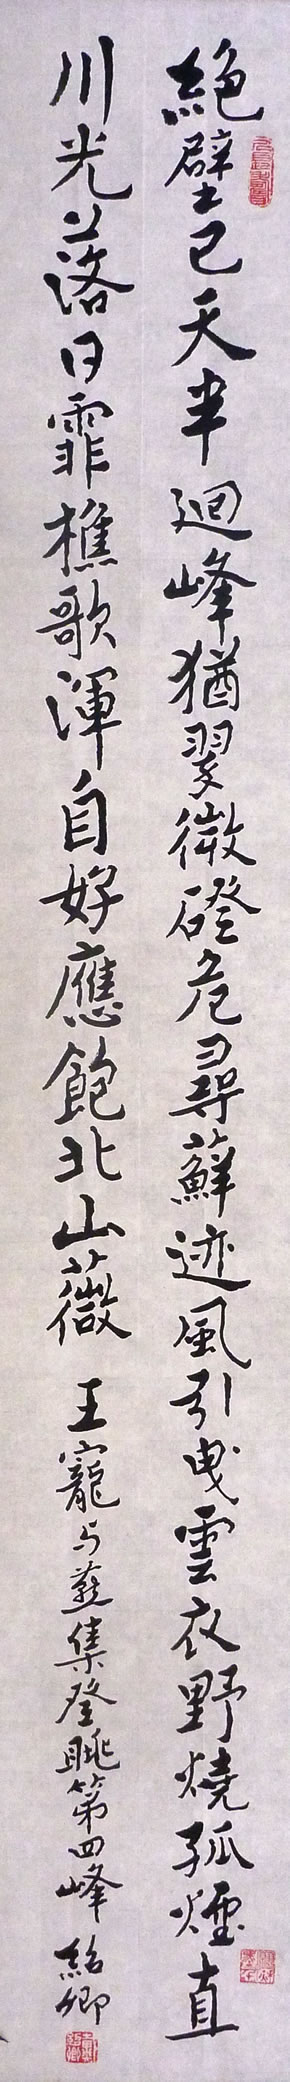 絶壁已天半迴峰猶翠微磴危尋蘚迹風引曳雲衣野燒孤煙直
川光落日霏樵歌渾自好應飽北山薇 王寵与燕集登眺第四峰 紹卿